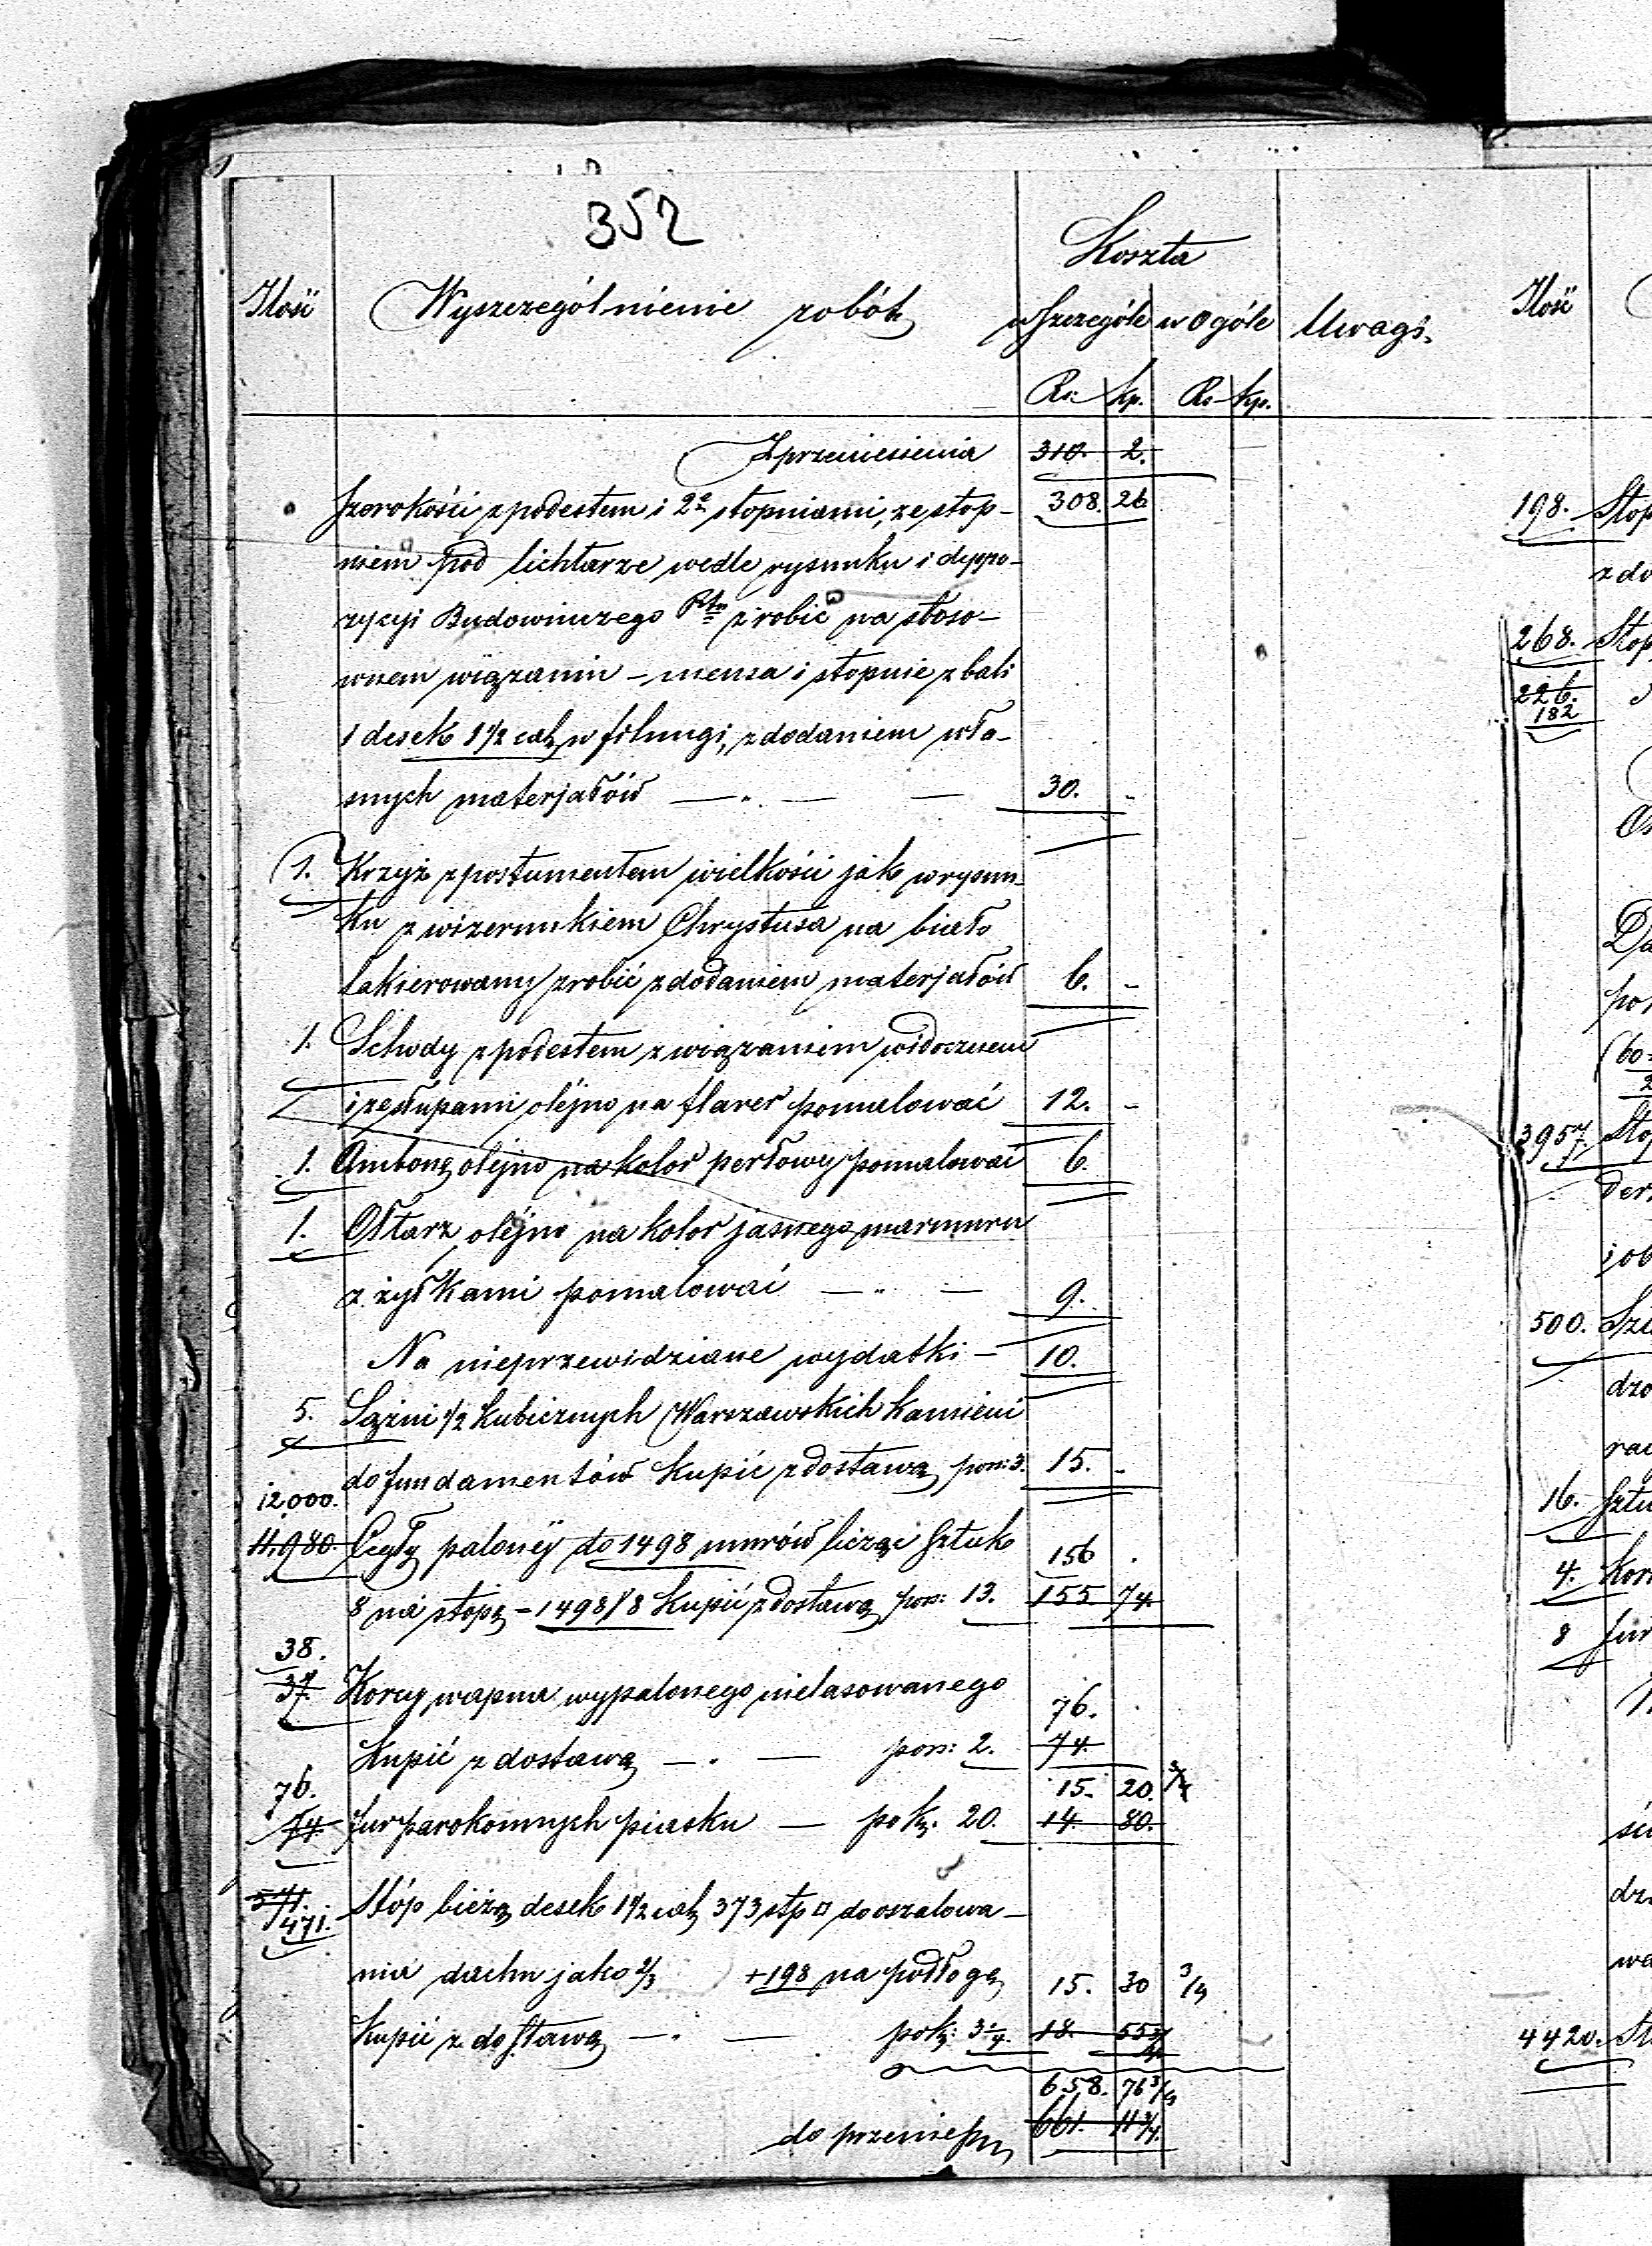 352
Ilość Wyszczególnienie robót Koszta
w Szczególe w Ogóle Uwagi.
Rs. kp. Rs kp.
Z przeniesienia 310. 2.
Szerokości z podestem i 2a stopniami, ze stop- 308. 26
niem pod lichtarze wedle rysunku i dyspo-
zycyi Budowniczego zrobić na stoso-
wnem wiązaniu – mensa i stopnie z bali
i desek 1 1/2 cal. w filungi, z dodaniem wła-
snych materjałów — " — — 30. -
1. Krzyż z postumentem wielkości jak w rysun-
ku z wizerunkiem Chrystusa na biało
lakierowany zrobić z dodaniem materjałów 6. -
1. Schody z podestem z wiązaniem widocznem
i ze słupami olejno na flaver pomalować 12. -
1. Ambonę olejno na kolor perłowy pomalować 6.
1. Ołtarz olejno na kolor jasnego marmuru
z żyłkami pomalować — " — 9.
Na nieprzewidziane wydatki — 10.
5. Sążni 1/2 kubicznych Warszawskich kamieni
do fundamentów kupić z dostawą po rs: 3. 15. -
12,000.
11,980. Cegły paloney do 1498 murów licząc sztuk 156 .
8 na stopę = 1498/8 kupić z dostawą po rs: 13. 155 74.
38.
37. Korcy wapna wypalonego nielasowanego 76. .
Kupić z dostawą — . — po rs: 2. 74.
76. 15. 20.
74. fur parokonnych piasku — po k. 20. 14. 80.
571.
471. Stóp bieżą. desek 1 1/2 cal. 373 stp □ do oszalowa-
nia dachu jako 2/3 + 198 na podłogę 15. 30 3/4
Kupić z dostawą — . — po k: 3 1/4. 18. 55 3/4
658. 76 3/4
do przeniesien 661. 11 3/4.
Ilość
198. Stop
z do
268. Stop
226.
182
Da
po
(60
3957. Sto
der
i ob
500.
dzo
16. sztu
4. Kor
8 fur
dz
wa
4420. St